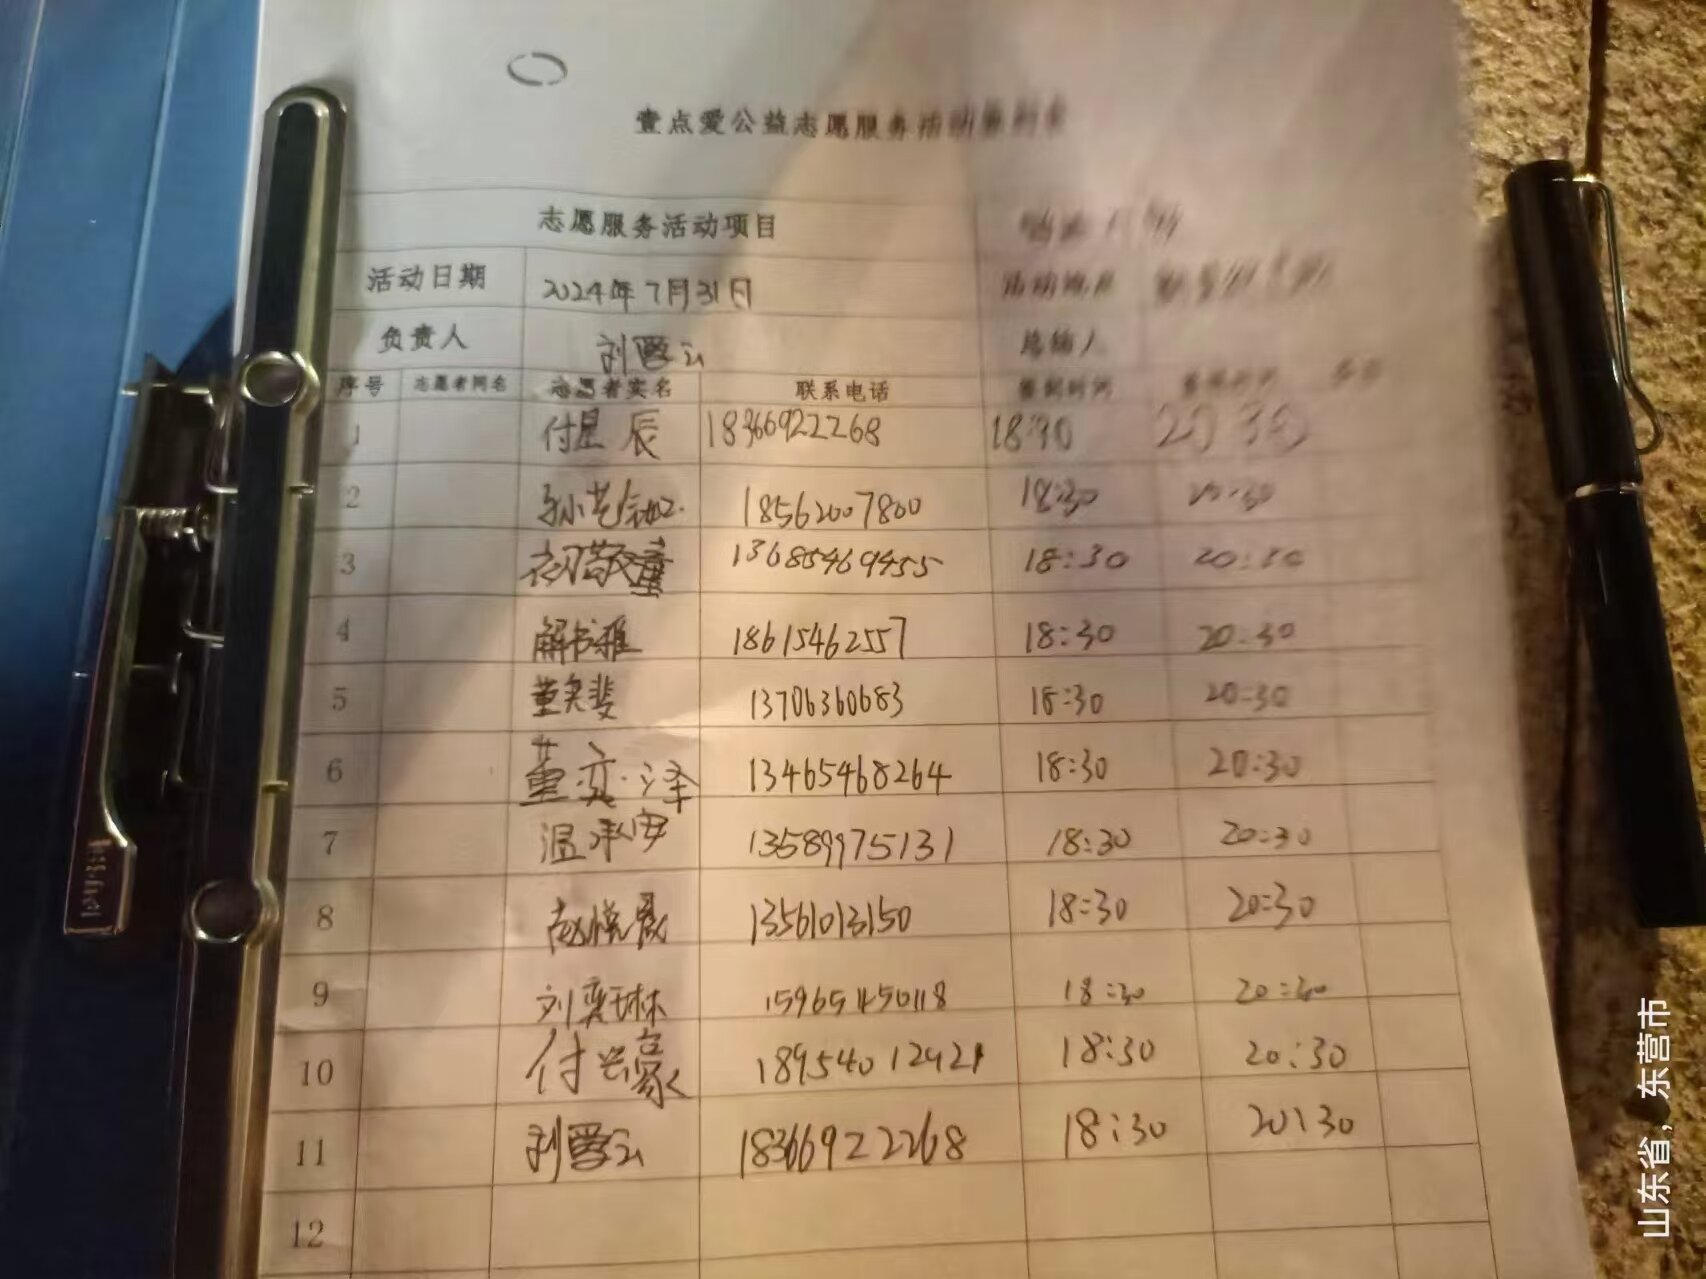 壹点爱公益志愿服务活动签到表
志愿服务活动项目
活动日期 2024年7月31日 活动地点
负责人 刘云
序号 志愿者网名 志愿者实名 联系电话 签到时间
1 付星辰 18366922268 18:30 20:30
2 孙艺 18562007800 18:30 20:30
3 初敬童 13685469455 18:30 20:30
4 解书雅 18615462557 18:30 20:30
5 董奕斐 13706360683 18:30 20:30
6 董奕泽 13465468264 18:30 20:30
7 温承安 13589975131 18:30 20:30
8 赵悦晟 13561013150 18:30 20:30
9 刘奕琳 15965450118 18:30 20:30
10 付兴豪 18954012421 18:30 20:30
11 刘云 18366922268 18:30 20:30
12
山东省，东营市